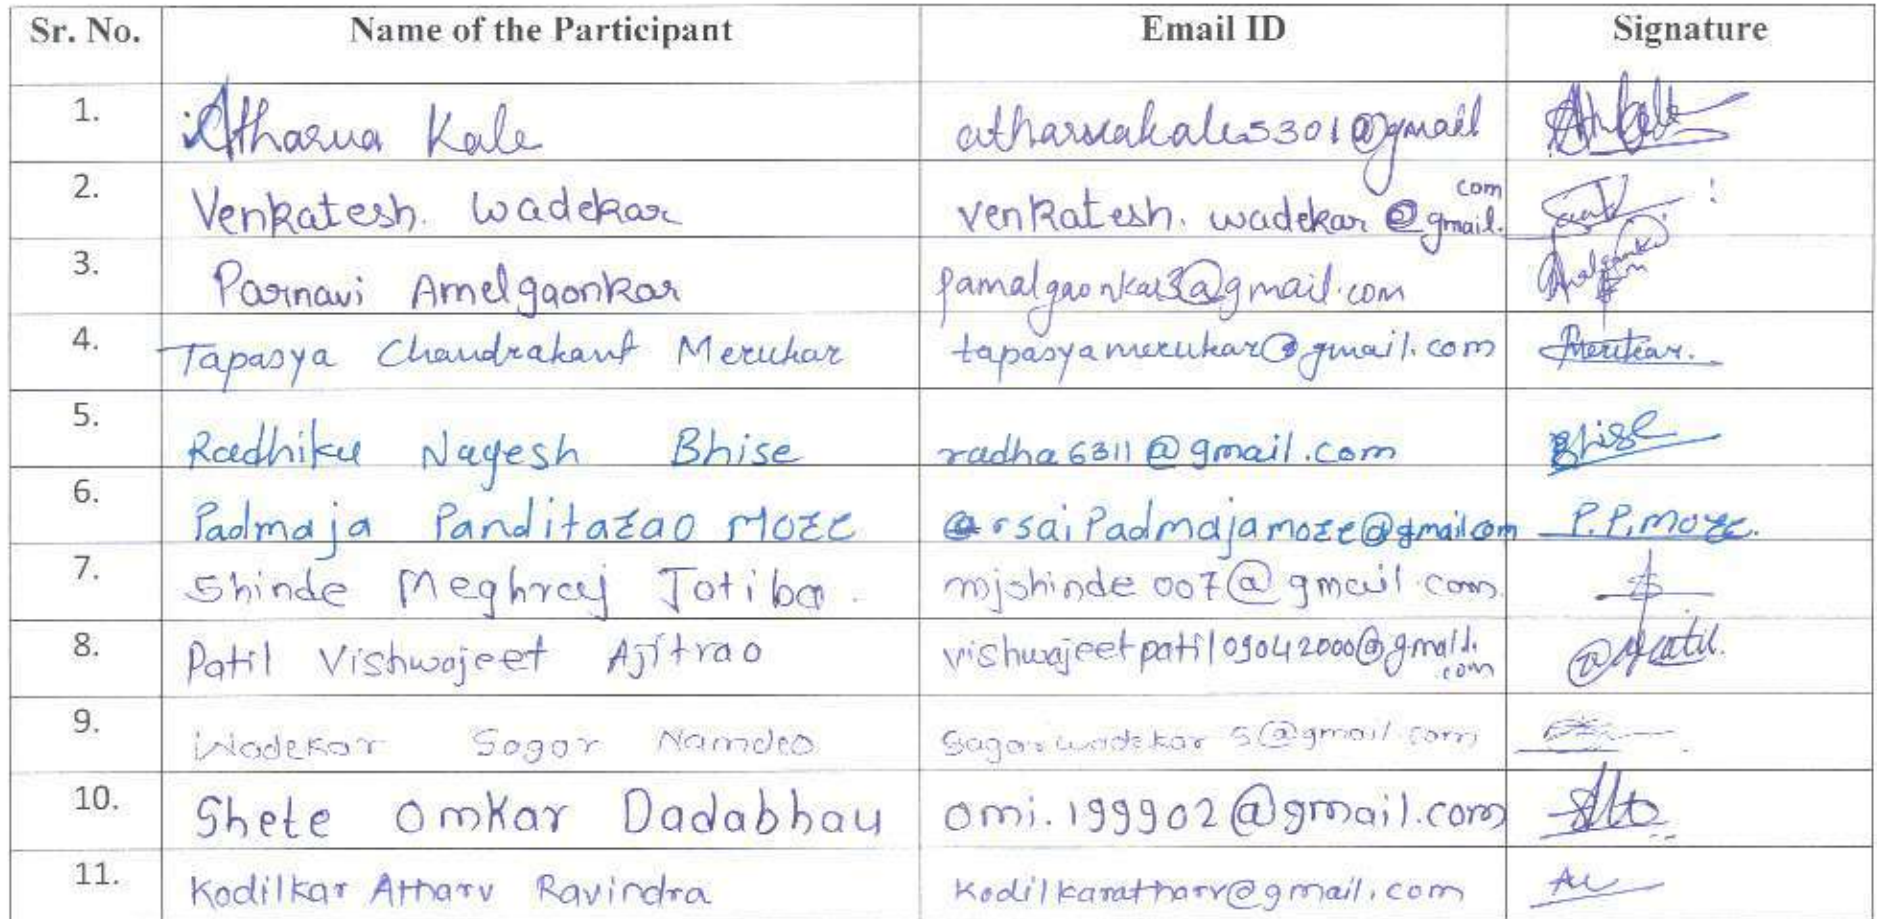 Sr. No. Name of the Participant Email ID Signature
1. Atharva Kale atharvakale5301@gmail
2. Venkatesh. Wadekar venkatesh.wadekar@gmail.com
3. Parnavi Amelgaonkar pamalgaonkar3@gmail.com
4. Tapasya Chandrakant Merukar tapasyamerukar@gmail.com Merukar.
5. Radhika Nagesh Bhise radha6311@gmail.com Bhise
6. Padmaja Panditarao More saipadmajamore@gmail.com P.P.More.
7. Shinde Meghraj Jotiba. mjshinde007@gmail.com
8. Patil Vishwajeet Ajitrao vishwajeetpatil09042000@gmail.com
9. Wadekar Sagar Namdeo sagarwadekar5@gmail.com
10. Shete Omkar Dadabhau omi.199902@gmail.com
11. Kodilkar Atharv Ravindra kodilkaratharv@gmail.com